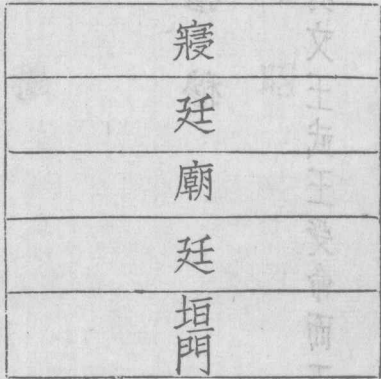 寢
廷
廟
廷
垣門